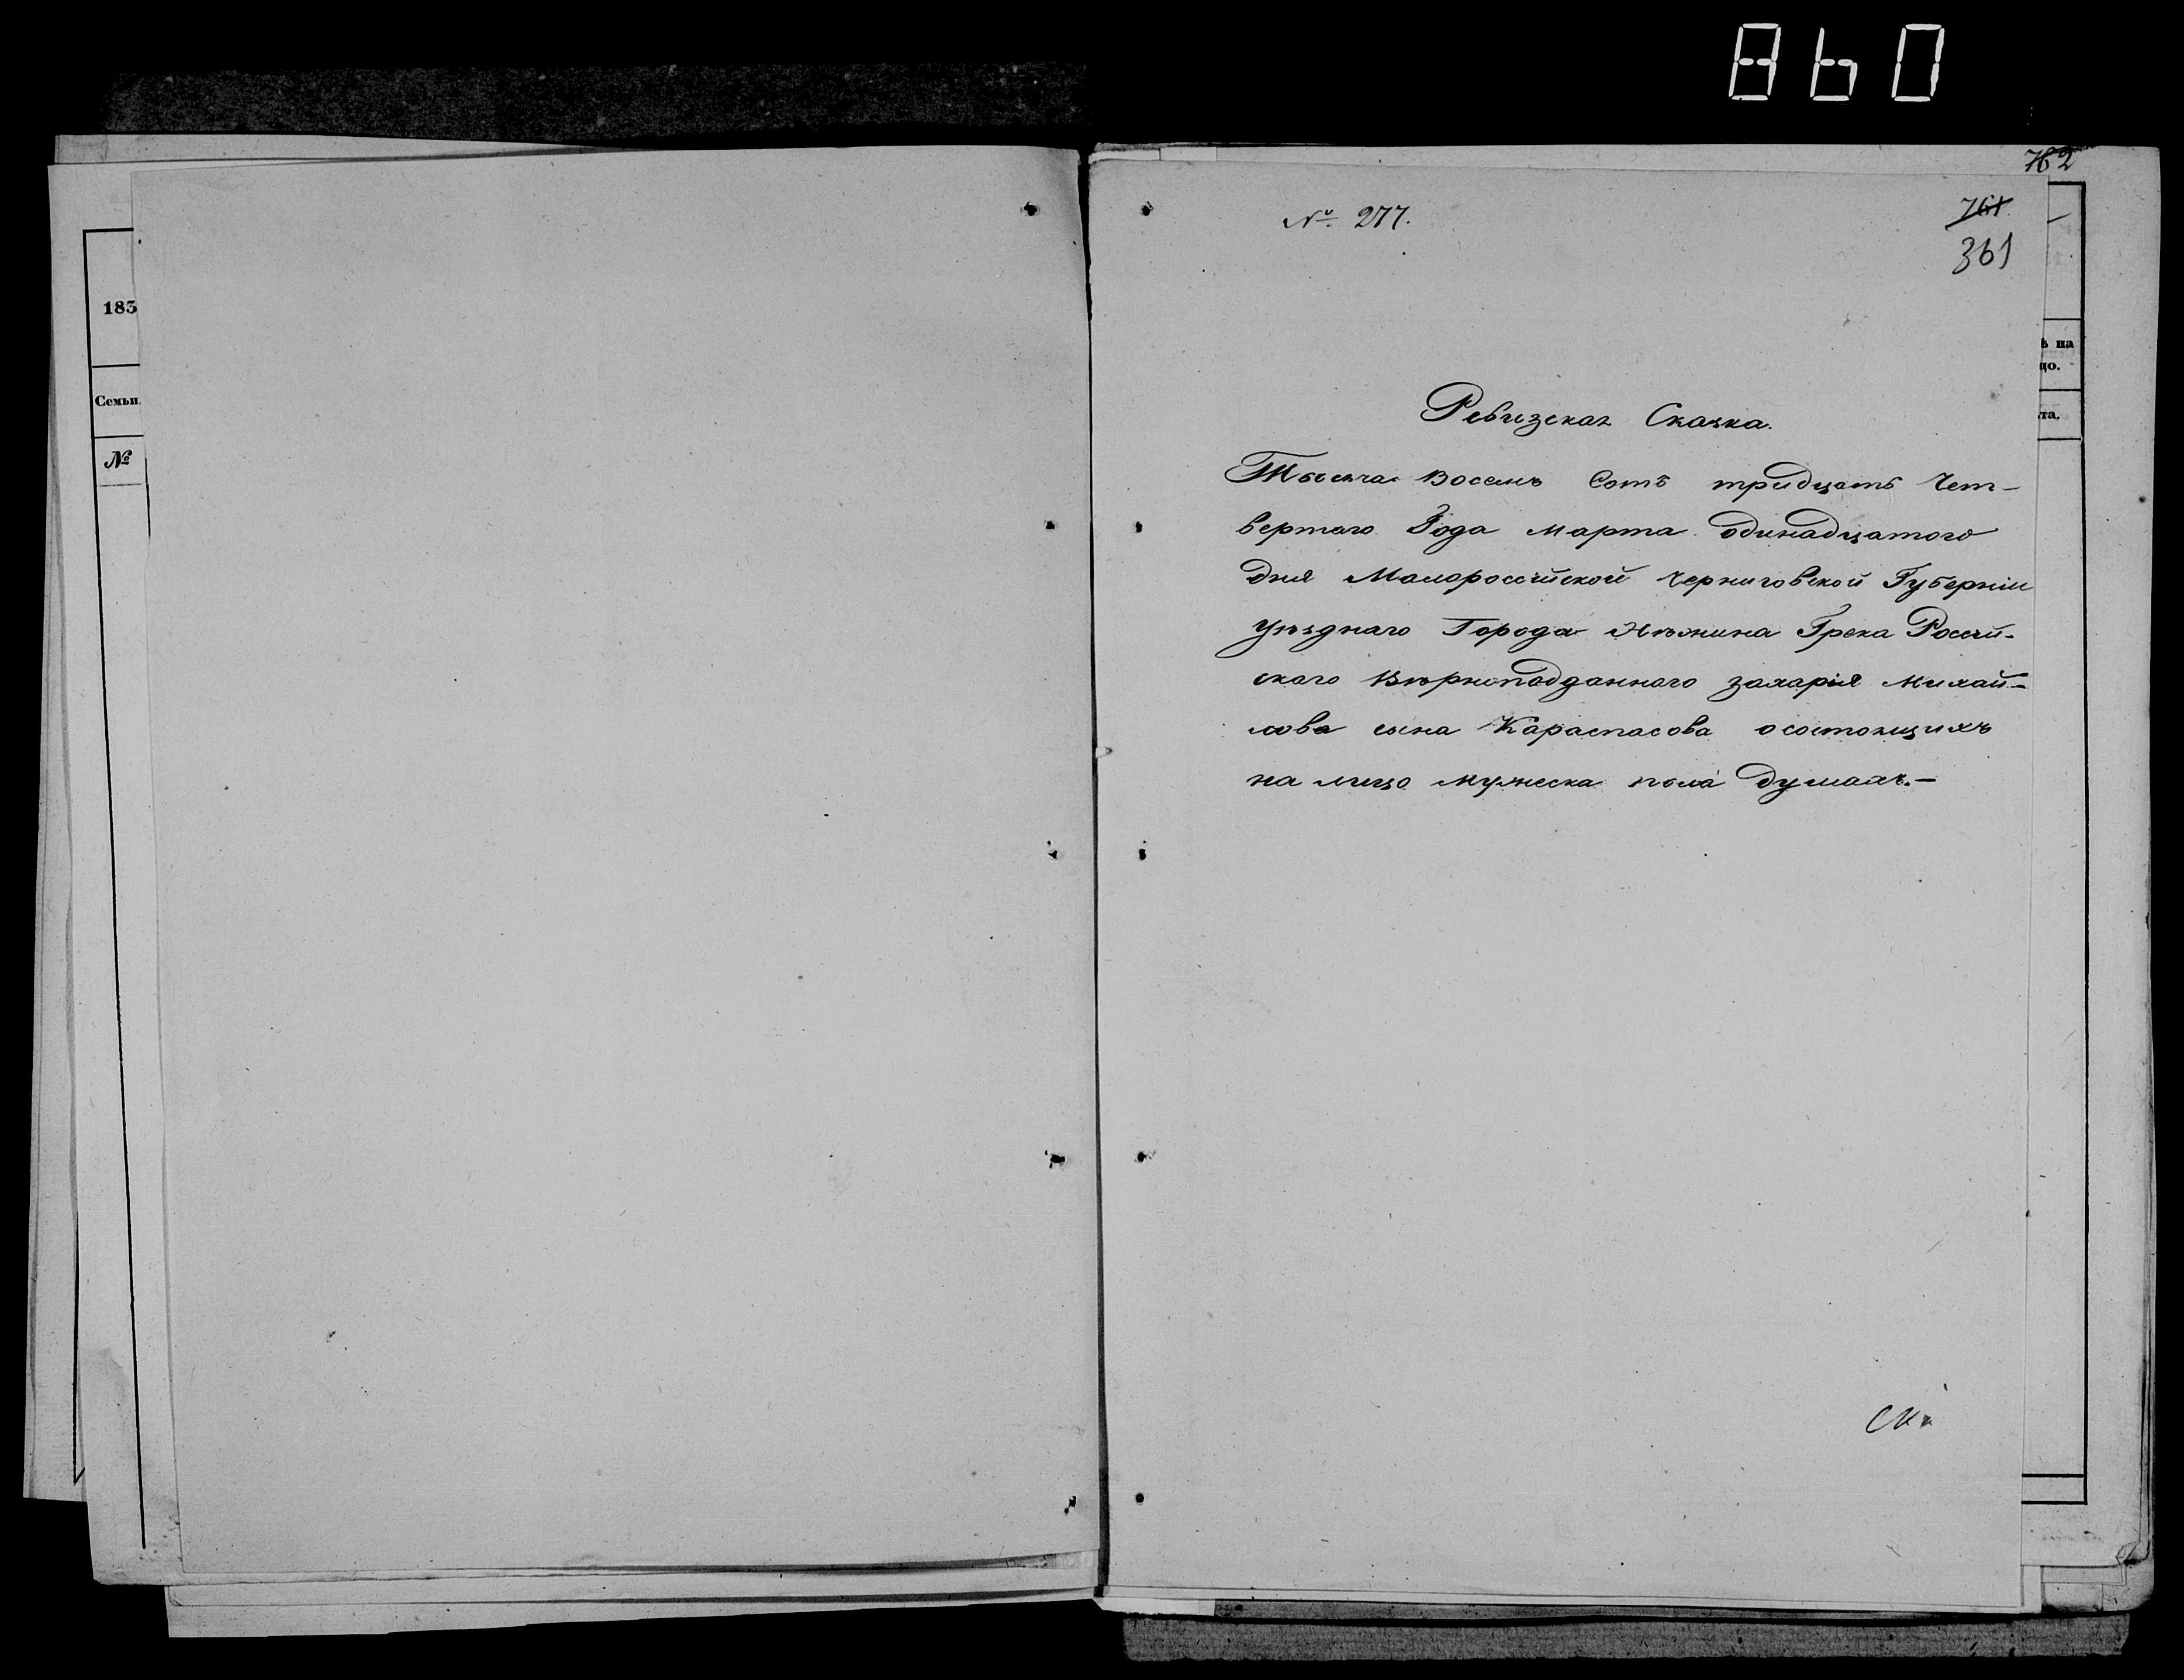 860
762
183
Семьи.
№
№ 277.
761
361
ѣ на
цо.
та.
Ревизская Сказка.
Тысяча Восемь Сотъ тридцать Чет-
вертаго Года марта одинадцатого
дня Малороссійской Черниговской Губерніи
уѣзднаго Города Нѣжина Грека Россій-
скаго Вѣрноподданнаго захарія Михай-
лова сына Караспасова осостоящихъ
на лицо мужеска пола душахъ.-